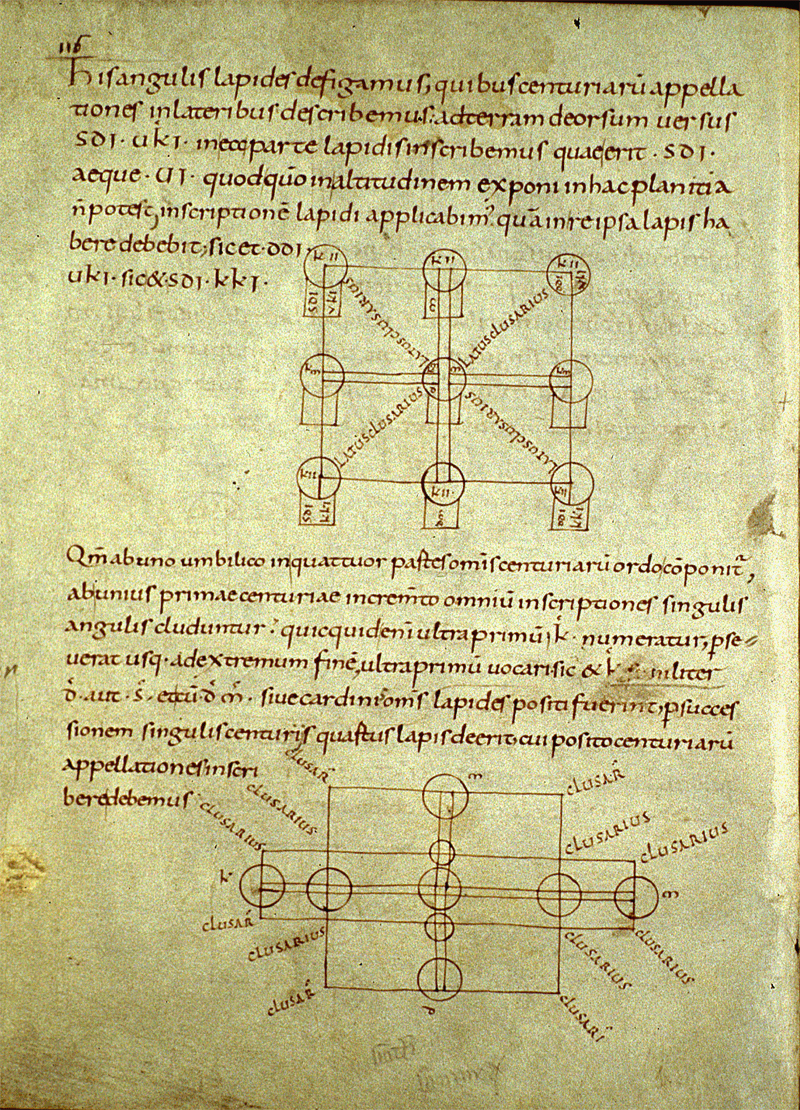 116
hisangulis lapides defigamus, quibus centuriarū appella
tiones inlateribus describemus: adterram deorsum versus
SDI · UKI · ineaparte lapidis inscribemus quaeerit · SDI ·
aeque · UI · quodquō inaltitudinem exponi inhac planitia
n̄ potest, inscriptionē lapidi applicabim' quā inre ipsa lapis ha
bere debebit, sicet · DDI ·
UKI · sic & · SDI · KKI ·
KII
KII
KII
SDI
VKI
LATUSCLUSARIUS
LATUSCLUSARIUS
KM
KM
LATUSCLUSARIUS
LATUSCLUSARIUS
KII
KII
KII
SDI
KKI
KKI
Qm̄ abuno umbilico inquattuor partes om̄is centuriarū ordo cōponit,
abunius primae centuriae increm̄to omniū inscriptiones singulis
angulis cluduntur: quicquidenī ultra primū · k · numeratur, pse
verat usq· adextremum finē, ultra primū vocari sic & k militer
D · aut · S · etcū D M · sive cardini om̄s lapides positi fuerint, psucces
sionem singulis centuriis quartus lapis deerit, cui posito centuriarū
appellationes inscri
bere debemus
CLUSAR̄
CLUSAR̄
M
CLUSARIUS
CLUSARIUS
CLUSARIUS
CLUSARIUS
K
M
CLUSAR̄
CLUSARIUS
CLUSARIUS
CLUSARIUS
CLUSAR̄
CLUSAR̄
D